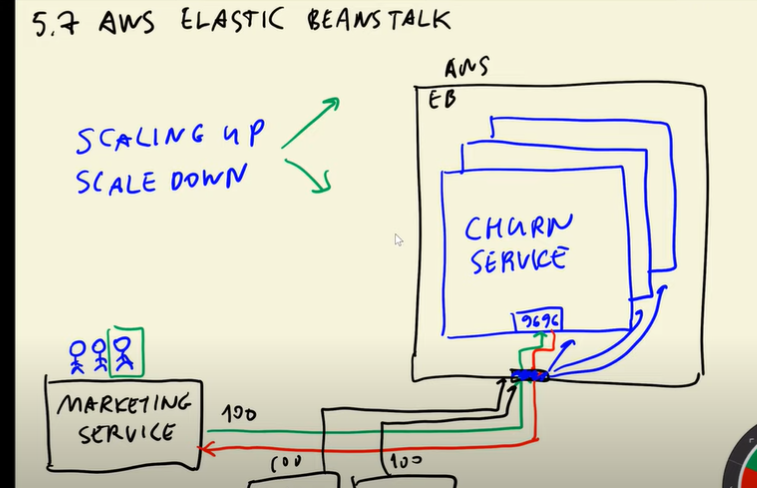 5.7 AWS ELASTIC BEANSTALK
AWS
EB
SCALING UP
SCALE DOWN
CHURN
SERVICE
9696
MARKETING
SERVICE
100
100
100